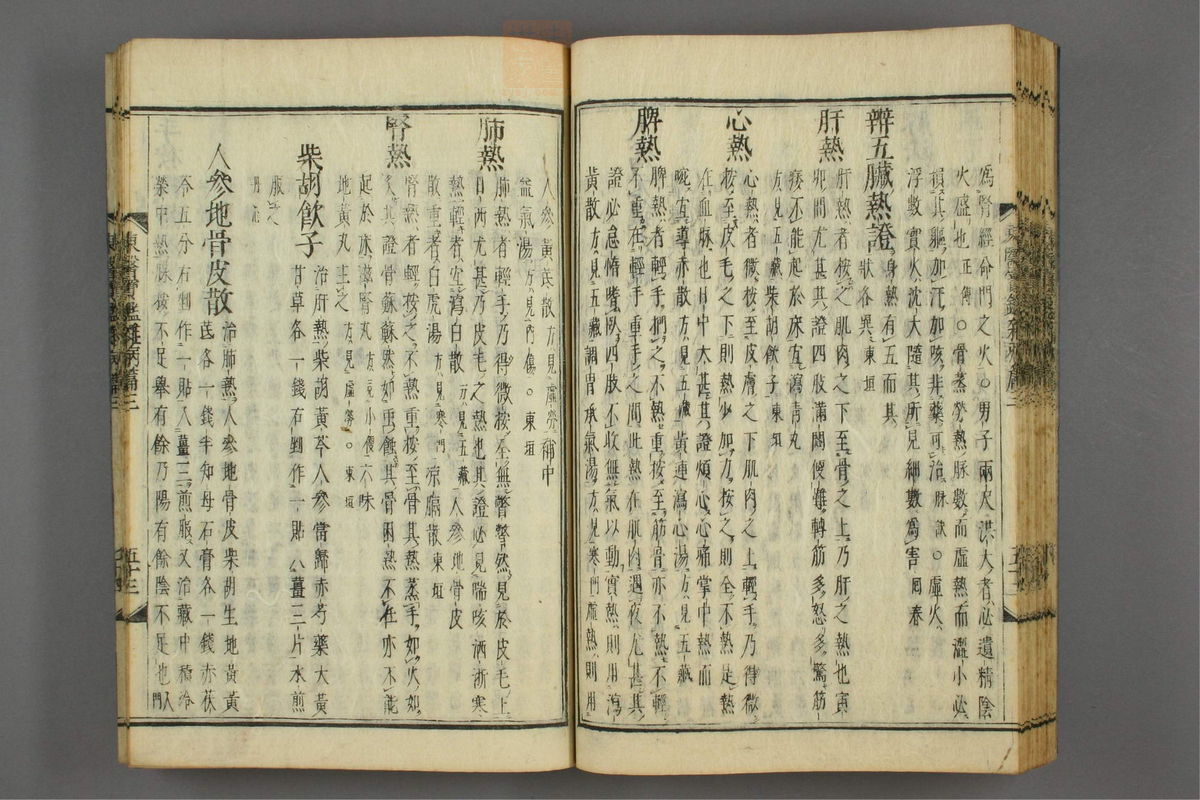 爲腎經命門之火○男子兩尺洪大者必遺精陰
火盛也正傳○骨蒸勞熱脉數而虛熱而濇小必
殞其軀加汗加咳非藥可治脉訣○虛火
浮數實火沈大隨其所見細數爲害回春
辨五臟熱證
身熱有五而其
狀各異東垣
肝熱
肝熱者按之肌肉之下至骨之上乃肝之熱也寅
卯間尤甚其證四肢滿悶便難轉筋多怒多驚筋
痿不能起於床宜瀉靑丸
方見五臟柴胡飮子東垣
心熱
心熱者微按至皮膚之下肌肉之上輕手乃得微
按至皮毛之下則熱少加力按之則全不熱是熱
在血脉也日中大甚其證煩心心痛掌中熱而
噦宜導赤散方見五臟黃連瀉心湯方見五臟
脾熱
脾熱者輕手捫之不熱重按至筋骨亦不熱不輕
不重在輕手重手之間此熱在肌肉遇夜尤甚其
證必怠惰嗜臥四肢不收無氣以動實熱則用瀉
黃散方見五藏調胃承氣湯方見寒門虛熱則用
人參黃芪散方見虛勞補中
益氣湯方見內傷○東垣
肺熱
肺熱者輕手乃得微按全無瞥瞥然見於皮毛上
日西尤甚乃皮毛之熱也其證必見喘咳洒淅寒
熱輕者宜瀉白散方見五藏人參地骨皮
散重者白虎湯方見寒門涼膈散東垣
腎熱
腎熱者輕按之不熱重按至骨其熱蒸手如火如
炙其證骨蘇蘇然如虫蝕其骨困熱不任亦不能
起於床滋腎丸方見小便六味
地黃丸主之方見虛勞○東垣
柴胡飮子
治肝熱柴胡黃芩人參當歸赤芍藥大黃
甘草各一錢右剉作一貼入薑三片水煎
服之
人參地骨皮散
治肺熱人參地骨皮柴胡生地黃黃
芪各一錢半知母石膏各一錢赤茯
苓五分右剉作一貼入薑三煎服又治藏中積冷
榮中熱脉按不足擧有餘乃陽有餘陰不足也入門